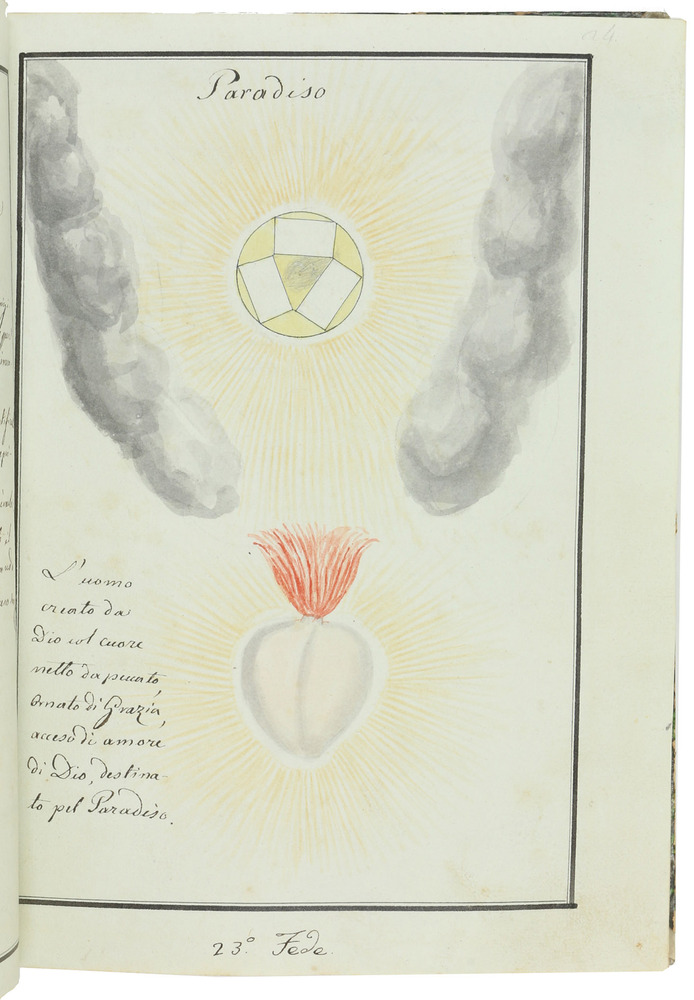 Paradiso
L'uomo
creato da
Dio col cuore
netto da peccato,
ornato di Grazia,
acceso di amore
di Dio, destina-
to pel Paradiso.
23.º Fede.